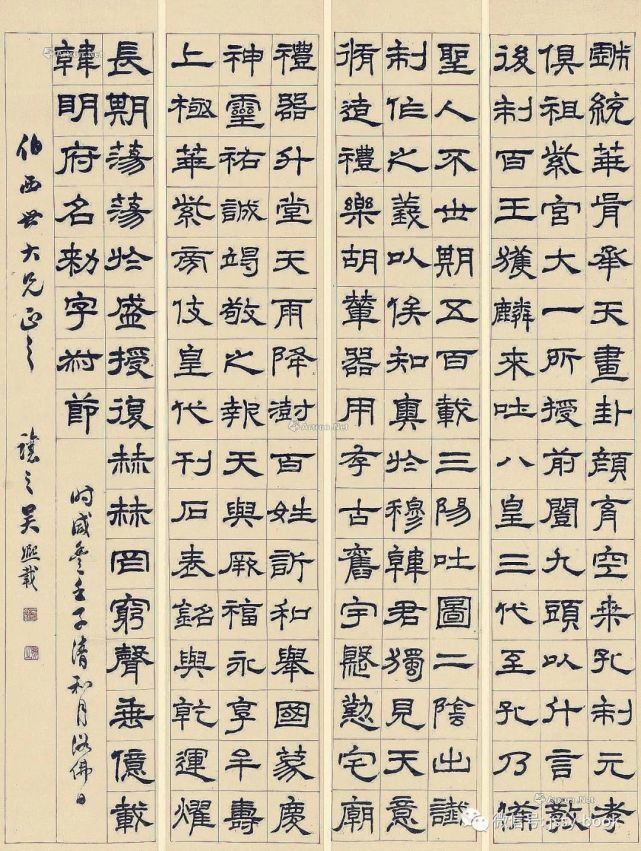 戲統華胥承天畫卦顏育空桒孔制元孝
俱祖紫宮大一所授前闓九頭以什言教
後制百王獲麟來吐八皇三代至孔乃備
聖人不世期五百載三陽吐圖二陰出讖
制作之義以俟知奧於穆韓君獨見天意
脩造禮樂胡輦器用存古舊宇慇懃宅廟
禮器升堂天雨降澍百姓訢和舉國蒙慶
神靈祐誠竭敬之報天與厥福永享牟壽
上極華紫旁伎皇代刊石表銘與乾運燿
長期蕩蕩於盛授復赫赫罔窮聲垂億載
韓明府名勑字叔節
时咸豐壬子清和月浴佛日
伯西世大兄正之 讓之吳熙載
Artron.Net
微信号: